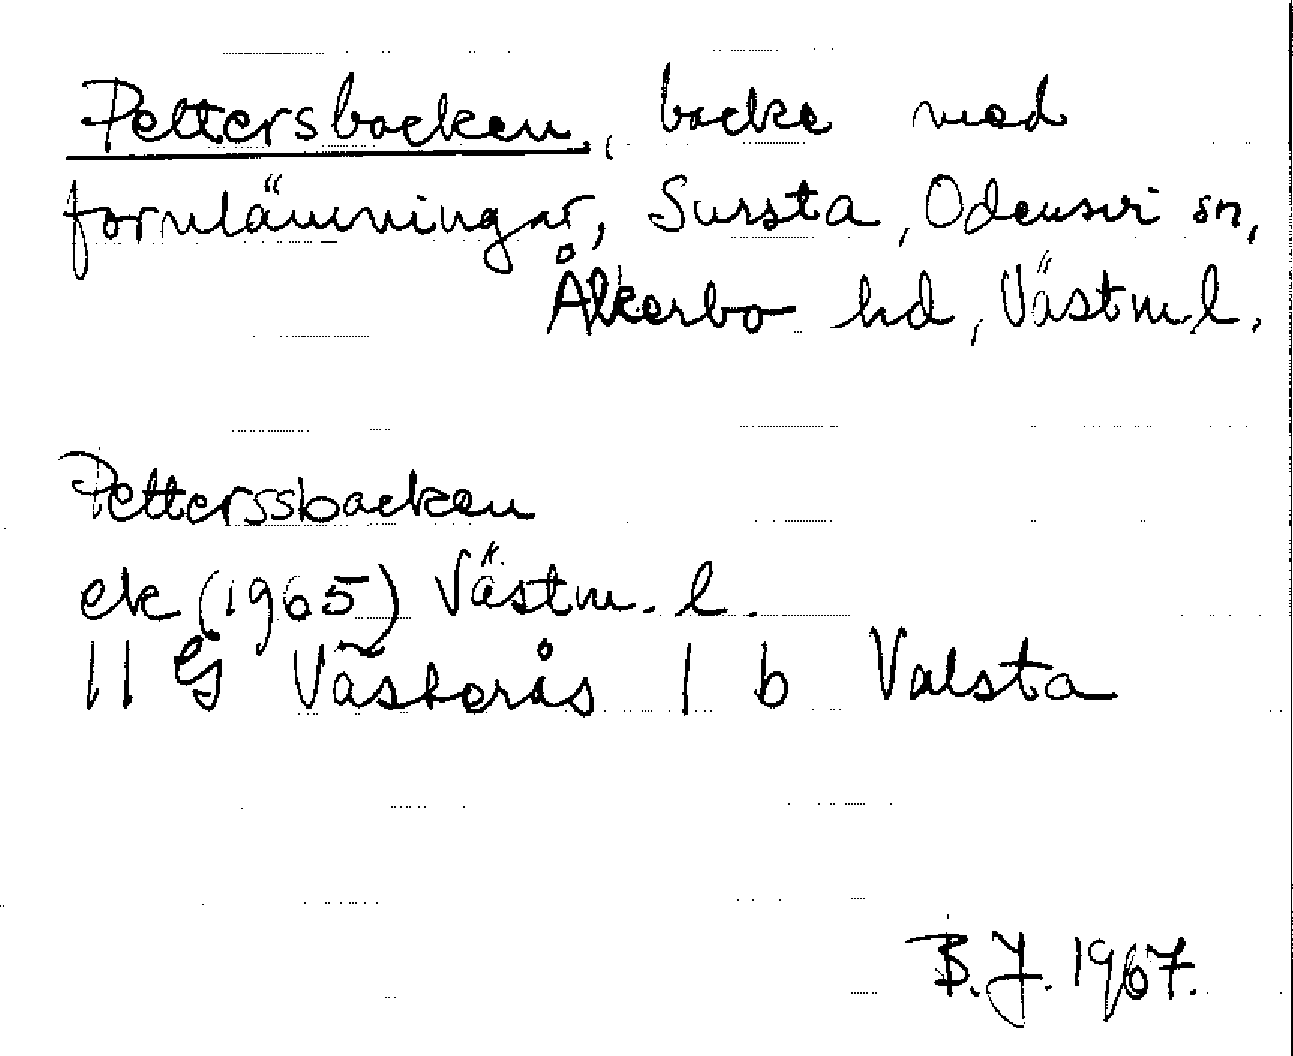 Pettersbacken, backe med
fornlämningar, Sursta, Odensvi sn,
Åkerbo hd, Västm.l.
Petterssbacken
ek (1965) Västm. l.
11 G Västerås 1 b Valsta
B.J. 1967.